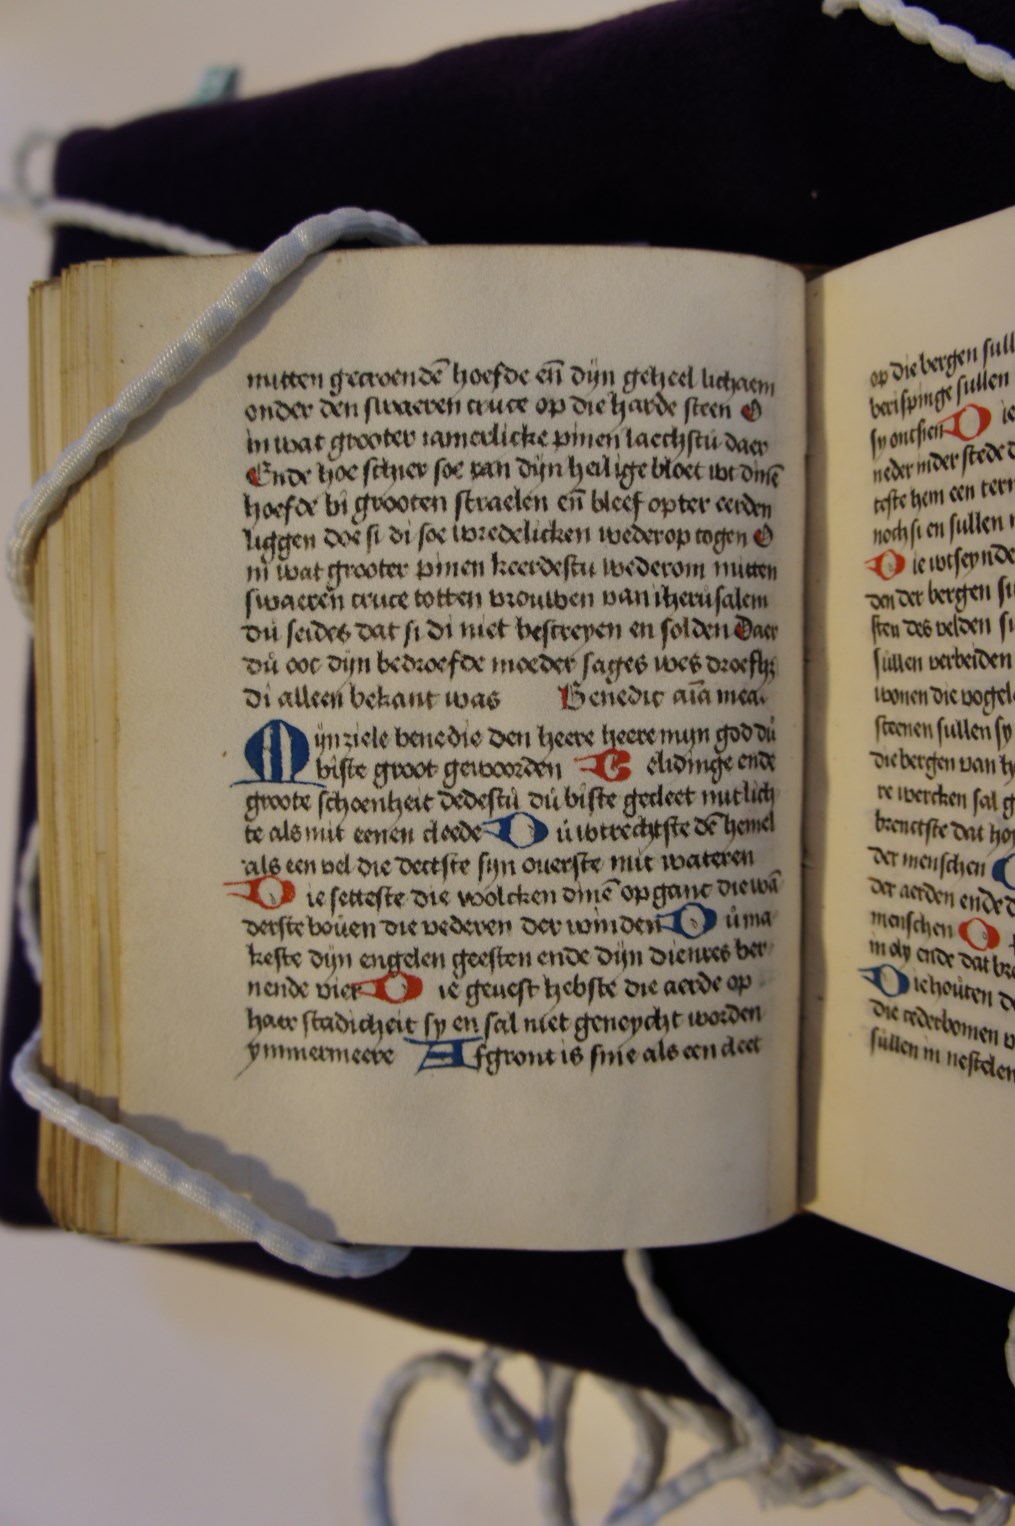 mitten gecroendē hoefde eñ dijn geheel lichaem
onder den swaeren cruce op die harde steen O
in wat grooter iamerlicke pinen laechstu daer
Ende hoe schier soe ran dijn heilige bloet wt dinē
hoefde bi grooten straelen eñ bleef opter eerden
liggen doe si di soe wredelicken wederop togen O
in wat grooter pinen keerdestu wederom mitten
swaeren cruce totten vrouwen van iherusalem
du seides dat si di niet bescreyen en solden Daer
du ooc dijn bedroefde moeder sages wes droefh;
di alleen bekant was Benedic aīa mea.
Mijn ziele benedie den heere heere mijn god du
biste groot gewoorden Belidinge ende
groote schoenheit dedestu du biste gecleet mit lich
te als mit eenen cleede Du wtrechtste dē hemel
als een vel die dectste sijn ouerste mit wateren
Die setteste die woolcken dinē opganc die wā
derste bouen die vederen der winden Du ma
keste dijn engelen geesten ende dijn dienres ber
nende vier Die geuest hebste die aerde op
haer stadicheit sy en sal niet geneycht worden
ymmermeere Afgront is sine als een cleet
op die bergen sull
berispinge sullen
sy ontsien Die
neder inder stede d
teste hem een ter
noch si en sullen
Die wtseynde
den der bergen su
sten des velden su
sullen verbeiden
wonen die vogel
steenen sullen sy
die bergen van h
re wercken sal g
brenctste dat hoy
der menschen
der aerden ende d
menschen D
in oly ende dat br
Die houten d
die cederbomen
sullen in nestelen